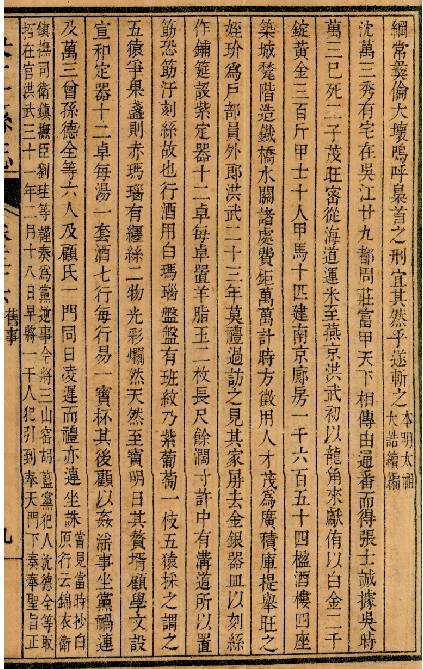 綱常彝倫大壞嗚呼梟首之刑宜其然乎遂斬之
本明太祖
大誥續編
沈萬三秀有宅在吳江廿九都周莊富甲天下相傳由通番而得張士誠據吳時
萬三已死二子茂旺密從海道運米至燕京洪武初以龍角來獻侑以白金二千
錠黃金三百斤甲士十人甲馬十匹建南京廊房一千六百五十四楹酒樓四座
築城甃階造鐵橋水關諸處費鉅萬萬計時方徵用人才茂爲廣積庫提舉旺之
姪玠爲戶部員外郎洪武二十三年莫禮過訪之見其家屏去金銀器皿以刻絲
作鋪筵設紫定器十二卓每卓置羊脂玉二枚長尺餘濶寸許中有溝道所以置
筯恐筯汙刻絲故也行酒用白瑪瑙盤盤有班紋乃紫葡萄一枝五猿採之謂之
五猿爭果盞則赤瑪瑙有纏絲二物光彩爛然天然至寶明日其贅壻顧學文設
宣和定器十二卓每湯一套酒七行每行易一寳杯其後顧以姦事坐黨禍連
及萬三曾孫德全等六人及顧氏一門同日凌遲而禮亦連坐誅
嘗見當時抄白
原行云錦衣衛
鎮撫司衛鎮撫臣劉珪等謹奏爲黨逆事今將三山窩胡藍黨犯人沈德全等取
招在官洪武三十一年二月十八日早將一干人犯引到奉天門下奏奉聖旨正
舊事
九